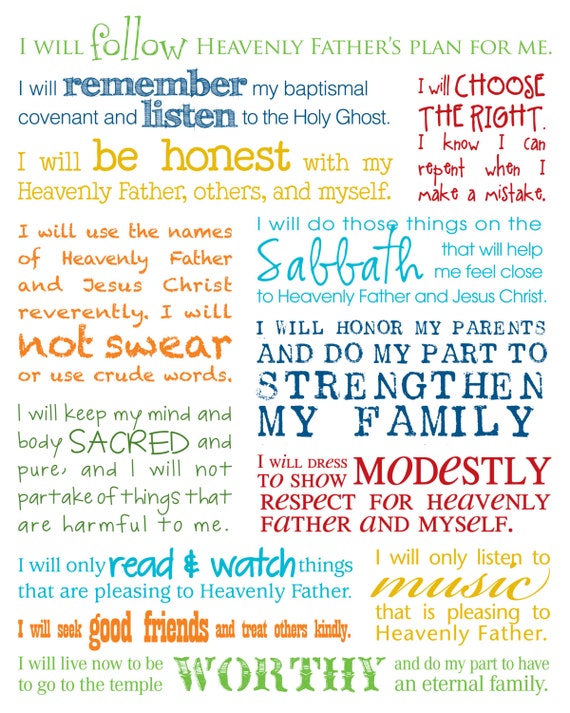 I will follow Heavenly Father's plan for me.
I will remember my baptismal
covenant and listen to the Holy Ghost.
I will CHOOSE
THE RIGHT.
I know I can
repent when I
make a mistake.
I will be honest with my
Heavenly Father, others, and myself.
I will use the names
of Heavenly Father
and Jesus Christ
reverently. I will
not swear
or use crude words.
I will do those things on the
Sabbath that will help
me feel close
to Heavenly Father and Jesus Christ.
I WILL HONOR MY PARENTS
AND DO MY PART TO
STRENGTHEN
MY FAMILY
I will keep my mind and
body SACRED and
pure, and I will not
partake of things that
are harmful to me.
I WILL DRESS
TO SHOW MODESTLY
RESPECT FOR HEAVENLY
FATHER AND MYSELF.
I will only read & watch things
that are pleasing to Heavenly Father.
I will only listen to
music
that is pleasing to
Heavenly Father.
I will seek good friends and treat others kindly.
I will live now to be
to go to the temple WORTHY and do my part to have
an eternal family.